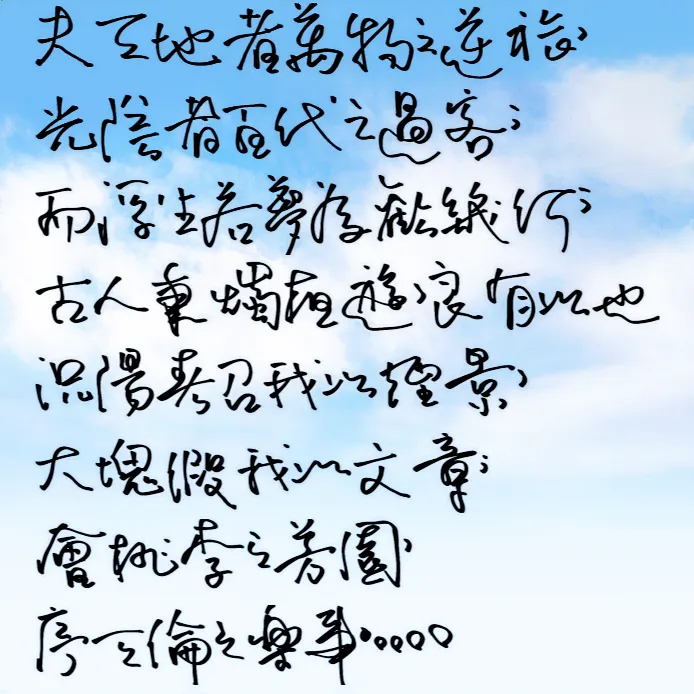 夫天地者萬物之逆旅；
光陰者百代之過客；
而浮生若夢為歡幾何；
古人秉燭遊浪有以也
況陽春召我以煙景；
大塊假我以文章；
會桃李之芳園；
序天倫之樂事。。。。。